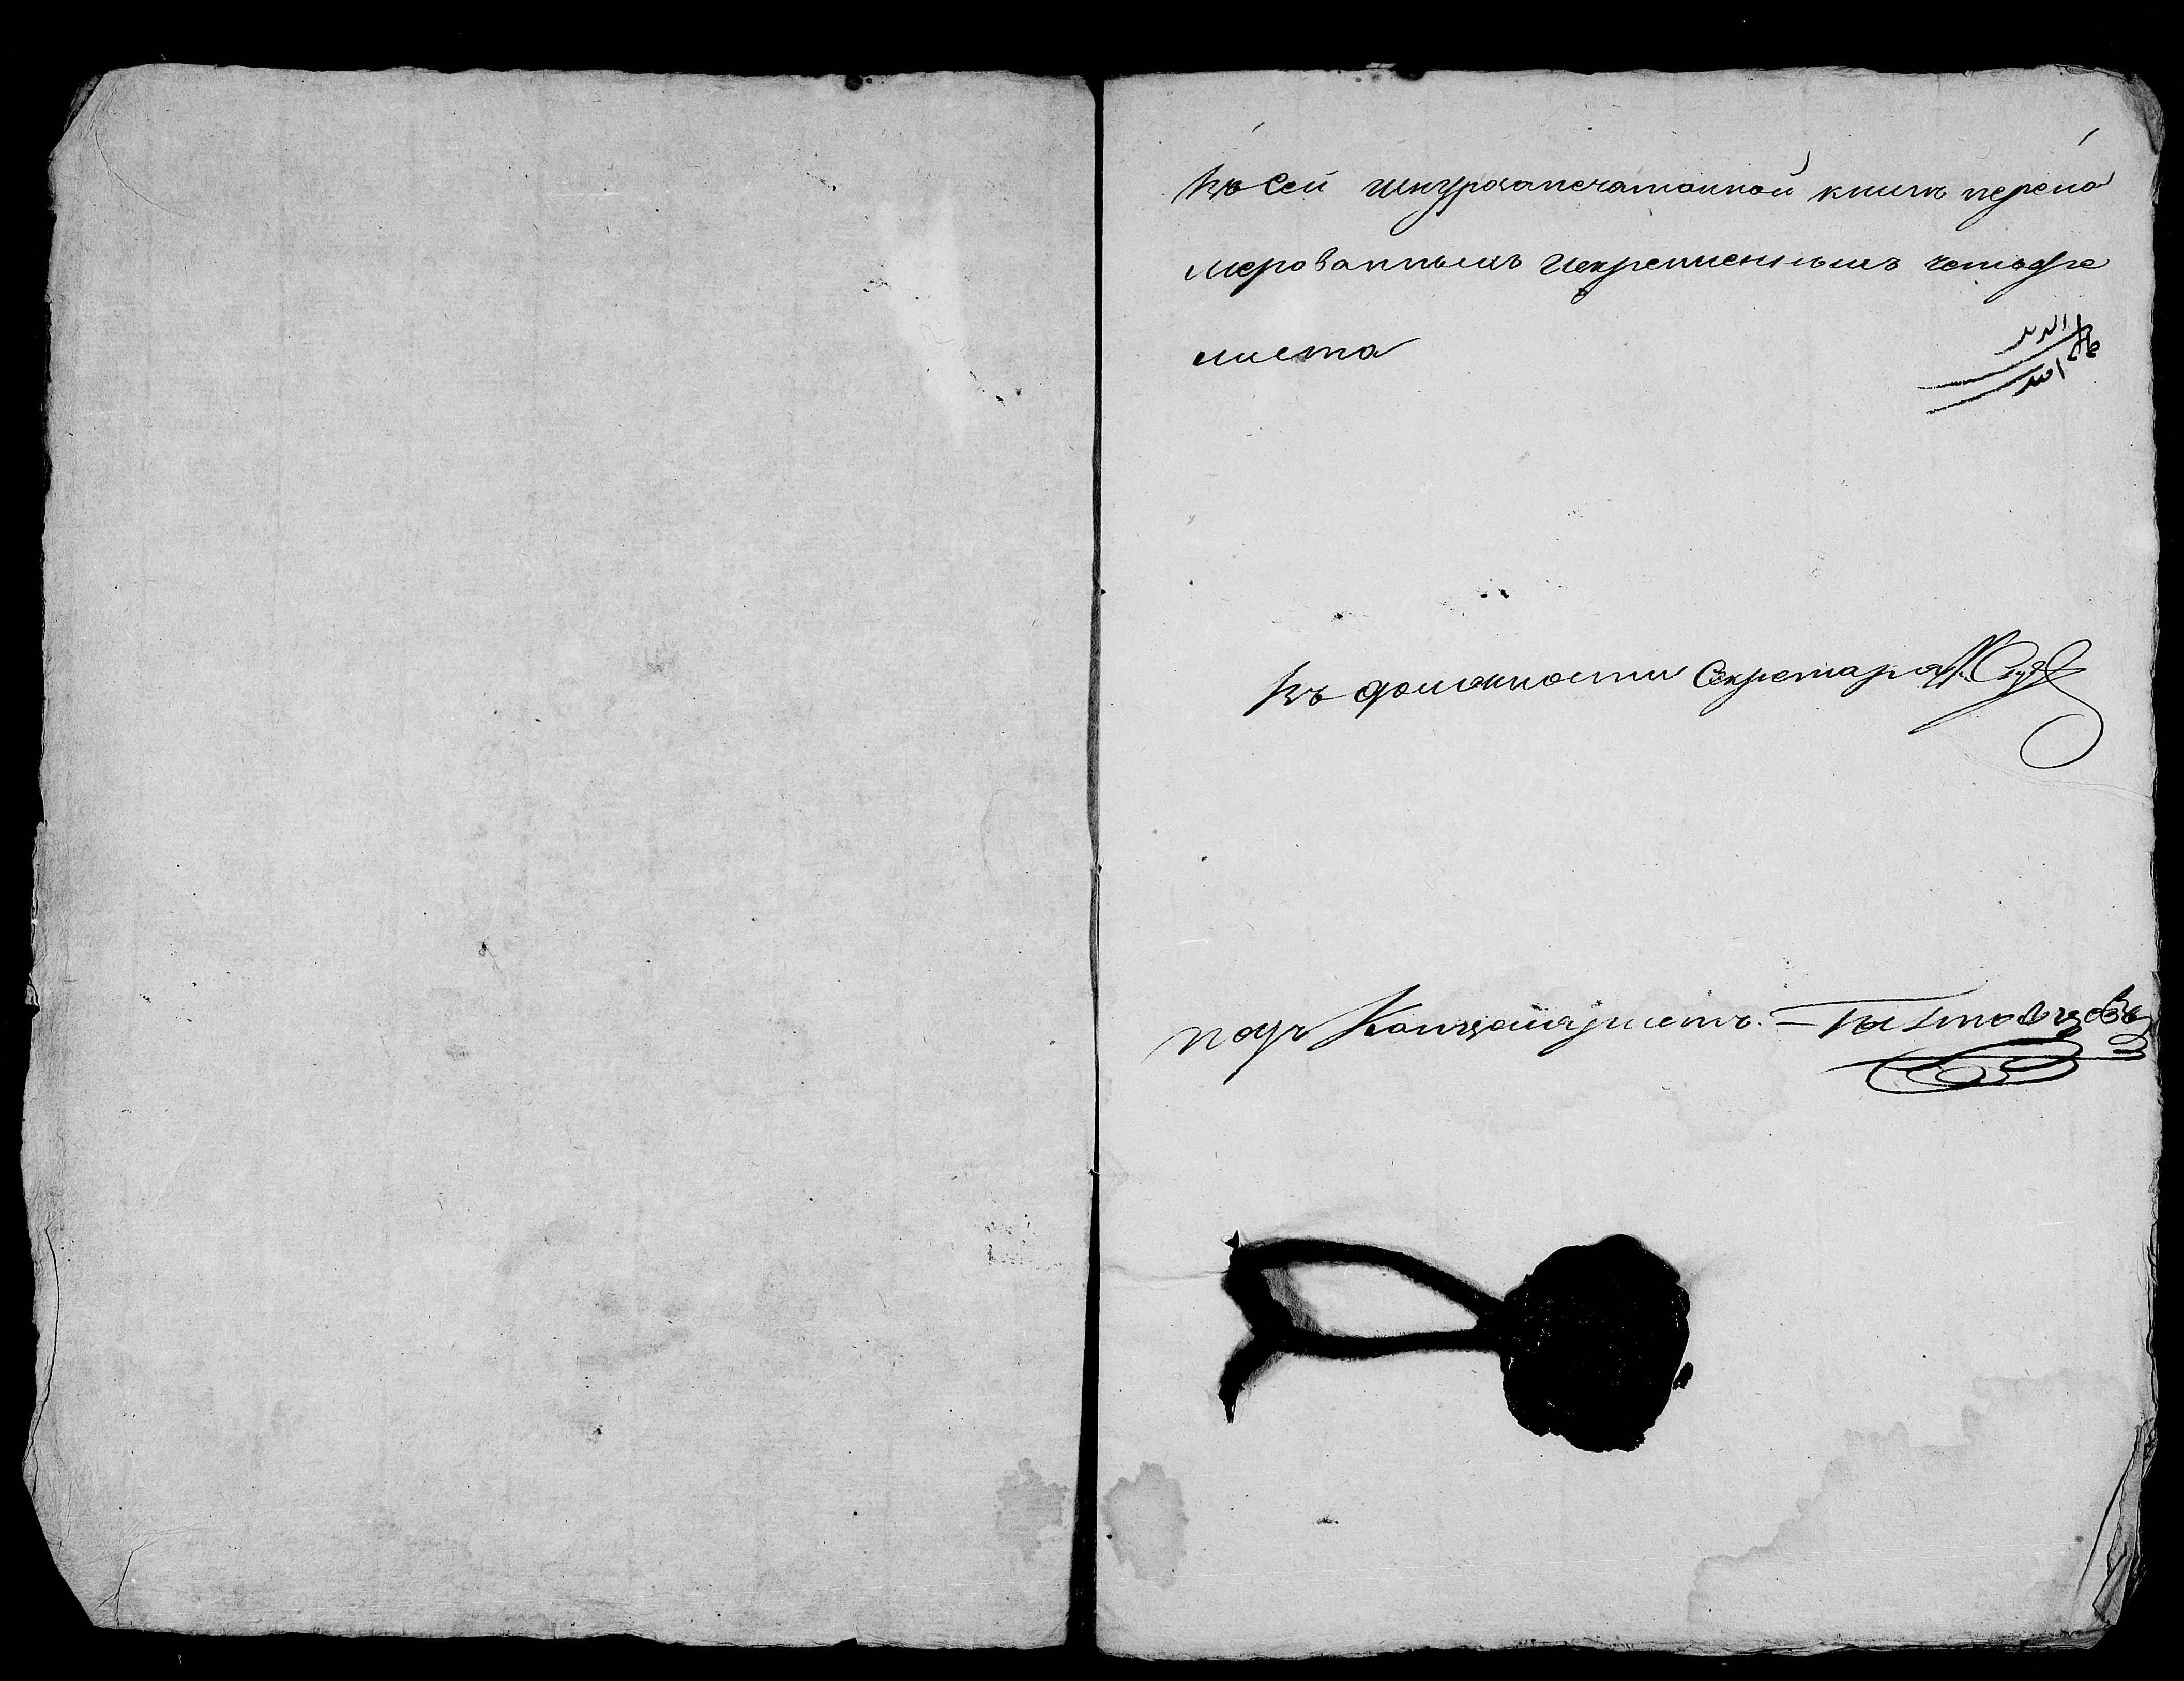 Въ сей шнурозапечатанной книгѣ перено
мерованныхъ искрепленныхъ четыре
листа
Въ должности Секретаря
подъ Канцеляристъ